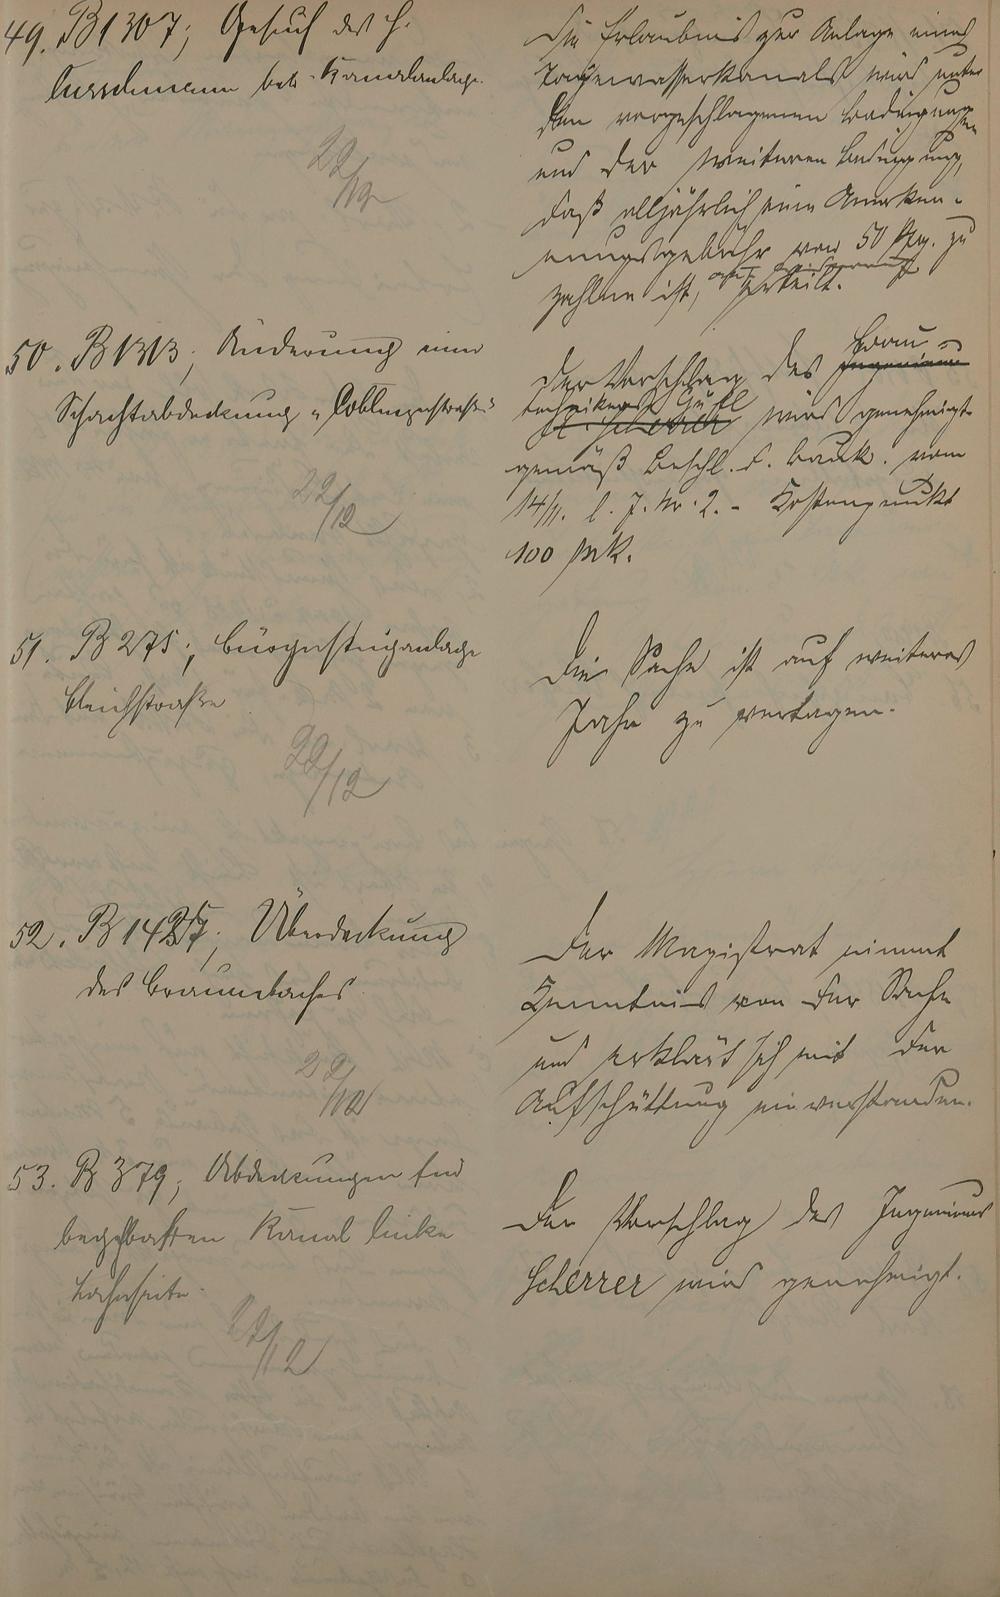 49. B 1307; Gesuch des H.
betr. Kanalanlage.
22/12
Die Erlaubnis zur Anlage eines
Tagewasserkanals wird unter
den vorgeschlagenen Bedingungen
und der weiteren Bedingung,
daß alljährlich eine Anerken-
nungsgebühr von 50 Pfg. zu
zahlen ist, erteilt.
50. B 1313; Änderung einer
Schachtabdeckung "Coblenzerstraße"
22/12
Der Vorschlag des Ingenieurs Bau-
technikers Gustl Scherrer wird genehmigt
gemäß Beschl. d. Bauk. vom
14/11. l. J. Nr. 2. - Kostenpunkt
100 Mk.
51. B 275; Bürgersteiganlage
Bleichstraße
22/12
Die Sache ist auf weiteres
Jahr zu vertagen.
52. B 1427; Überdeckung
des Braunbaches.
22/12
Der Magistrat nimmt
Kenntnis von der Sache
und erklärt sich mit der
Aufschüttung einverstanden.
53. B 379; Abdeckungen für
begehbaren Kanal linke
Lahnseite.
22/12
Der Vorschlag des Ingenieurs
Scherrer wird genehmigt.